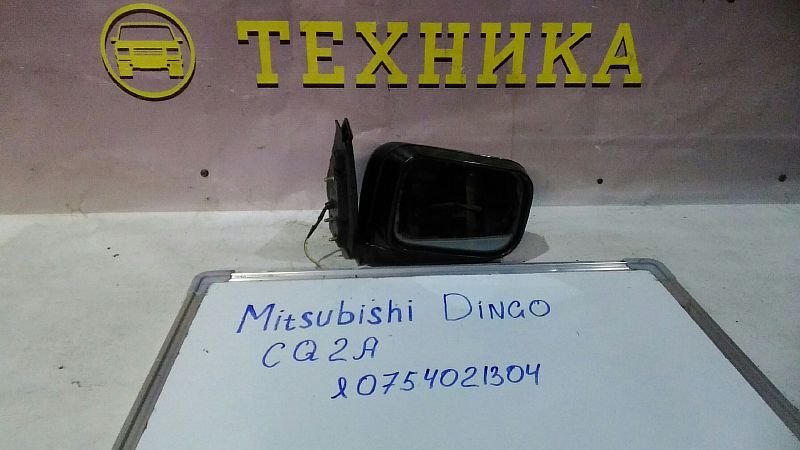 ТЕХНИКА
Mitsubishi Dingo
CQ2A
л0754021304